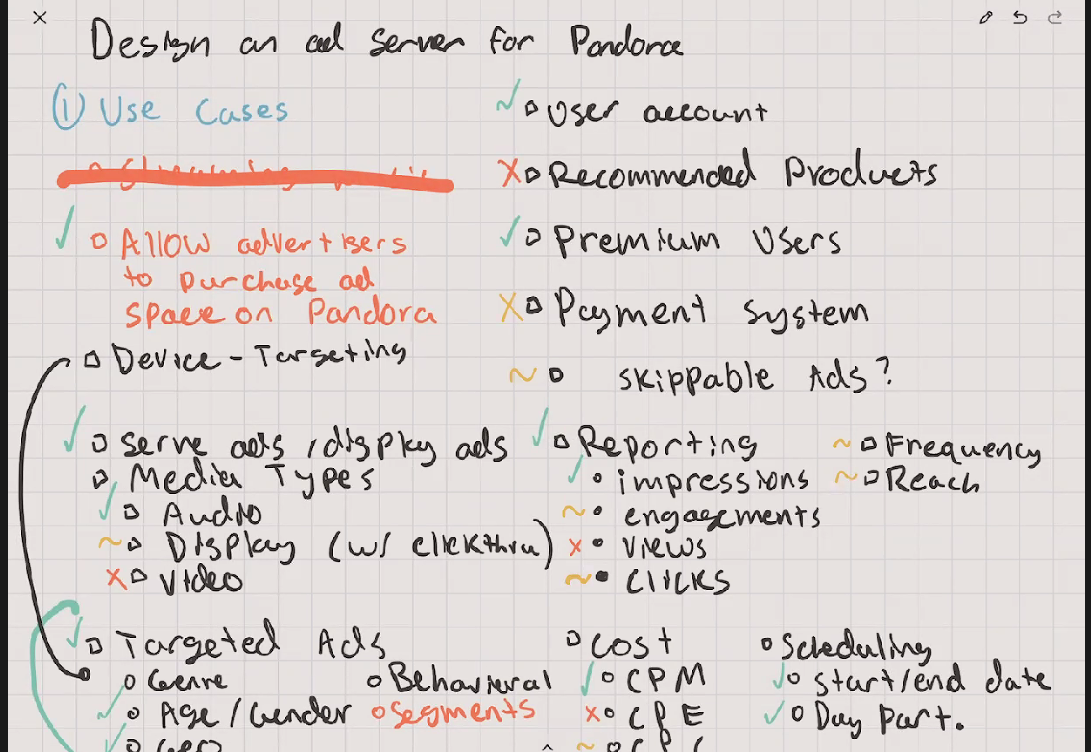 Design an ad server for Pandora
① Use Cases
Allow advertisers
to purchase ad
space on Pandora
Device-Targeting
Serve ads / display ads
Media Types
Audio
Display (w/ clickthru)
Video
Targeted Ads
Genre
Age/Gender
Geo
Behavioral
Segments
User account
Recommended Products
Premium Users
Payment System
Skippable Ads?
Reporting
impressions
engagements
views
clicks
Frequency
Reach
Cost
CPM
CPE
CPC
Scheduling
start/end date
Day part.